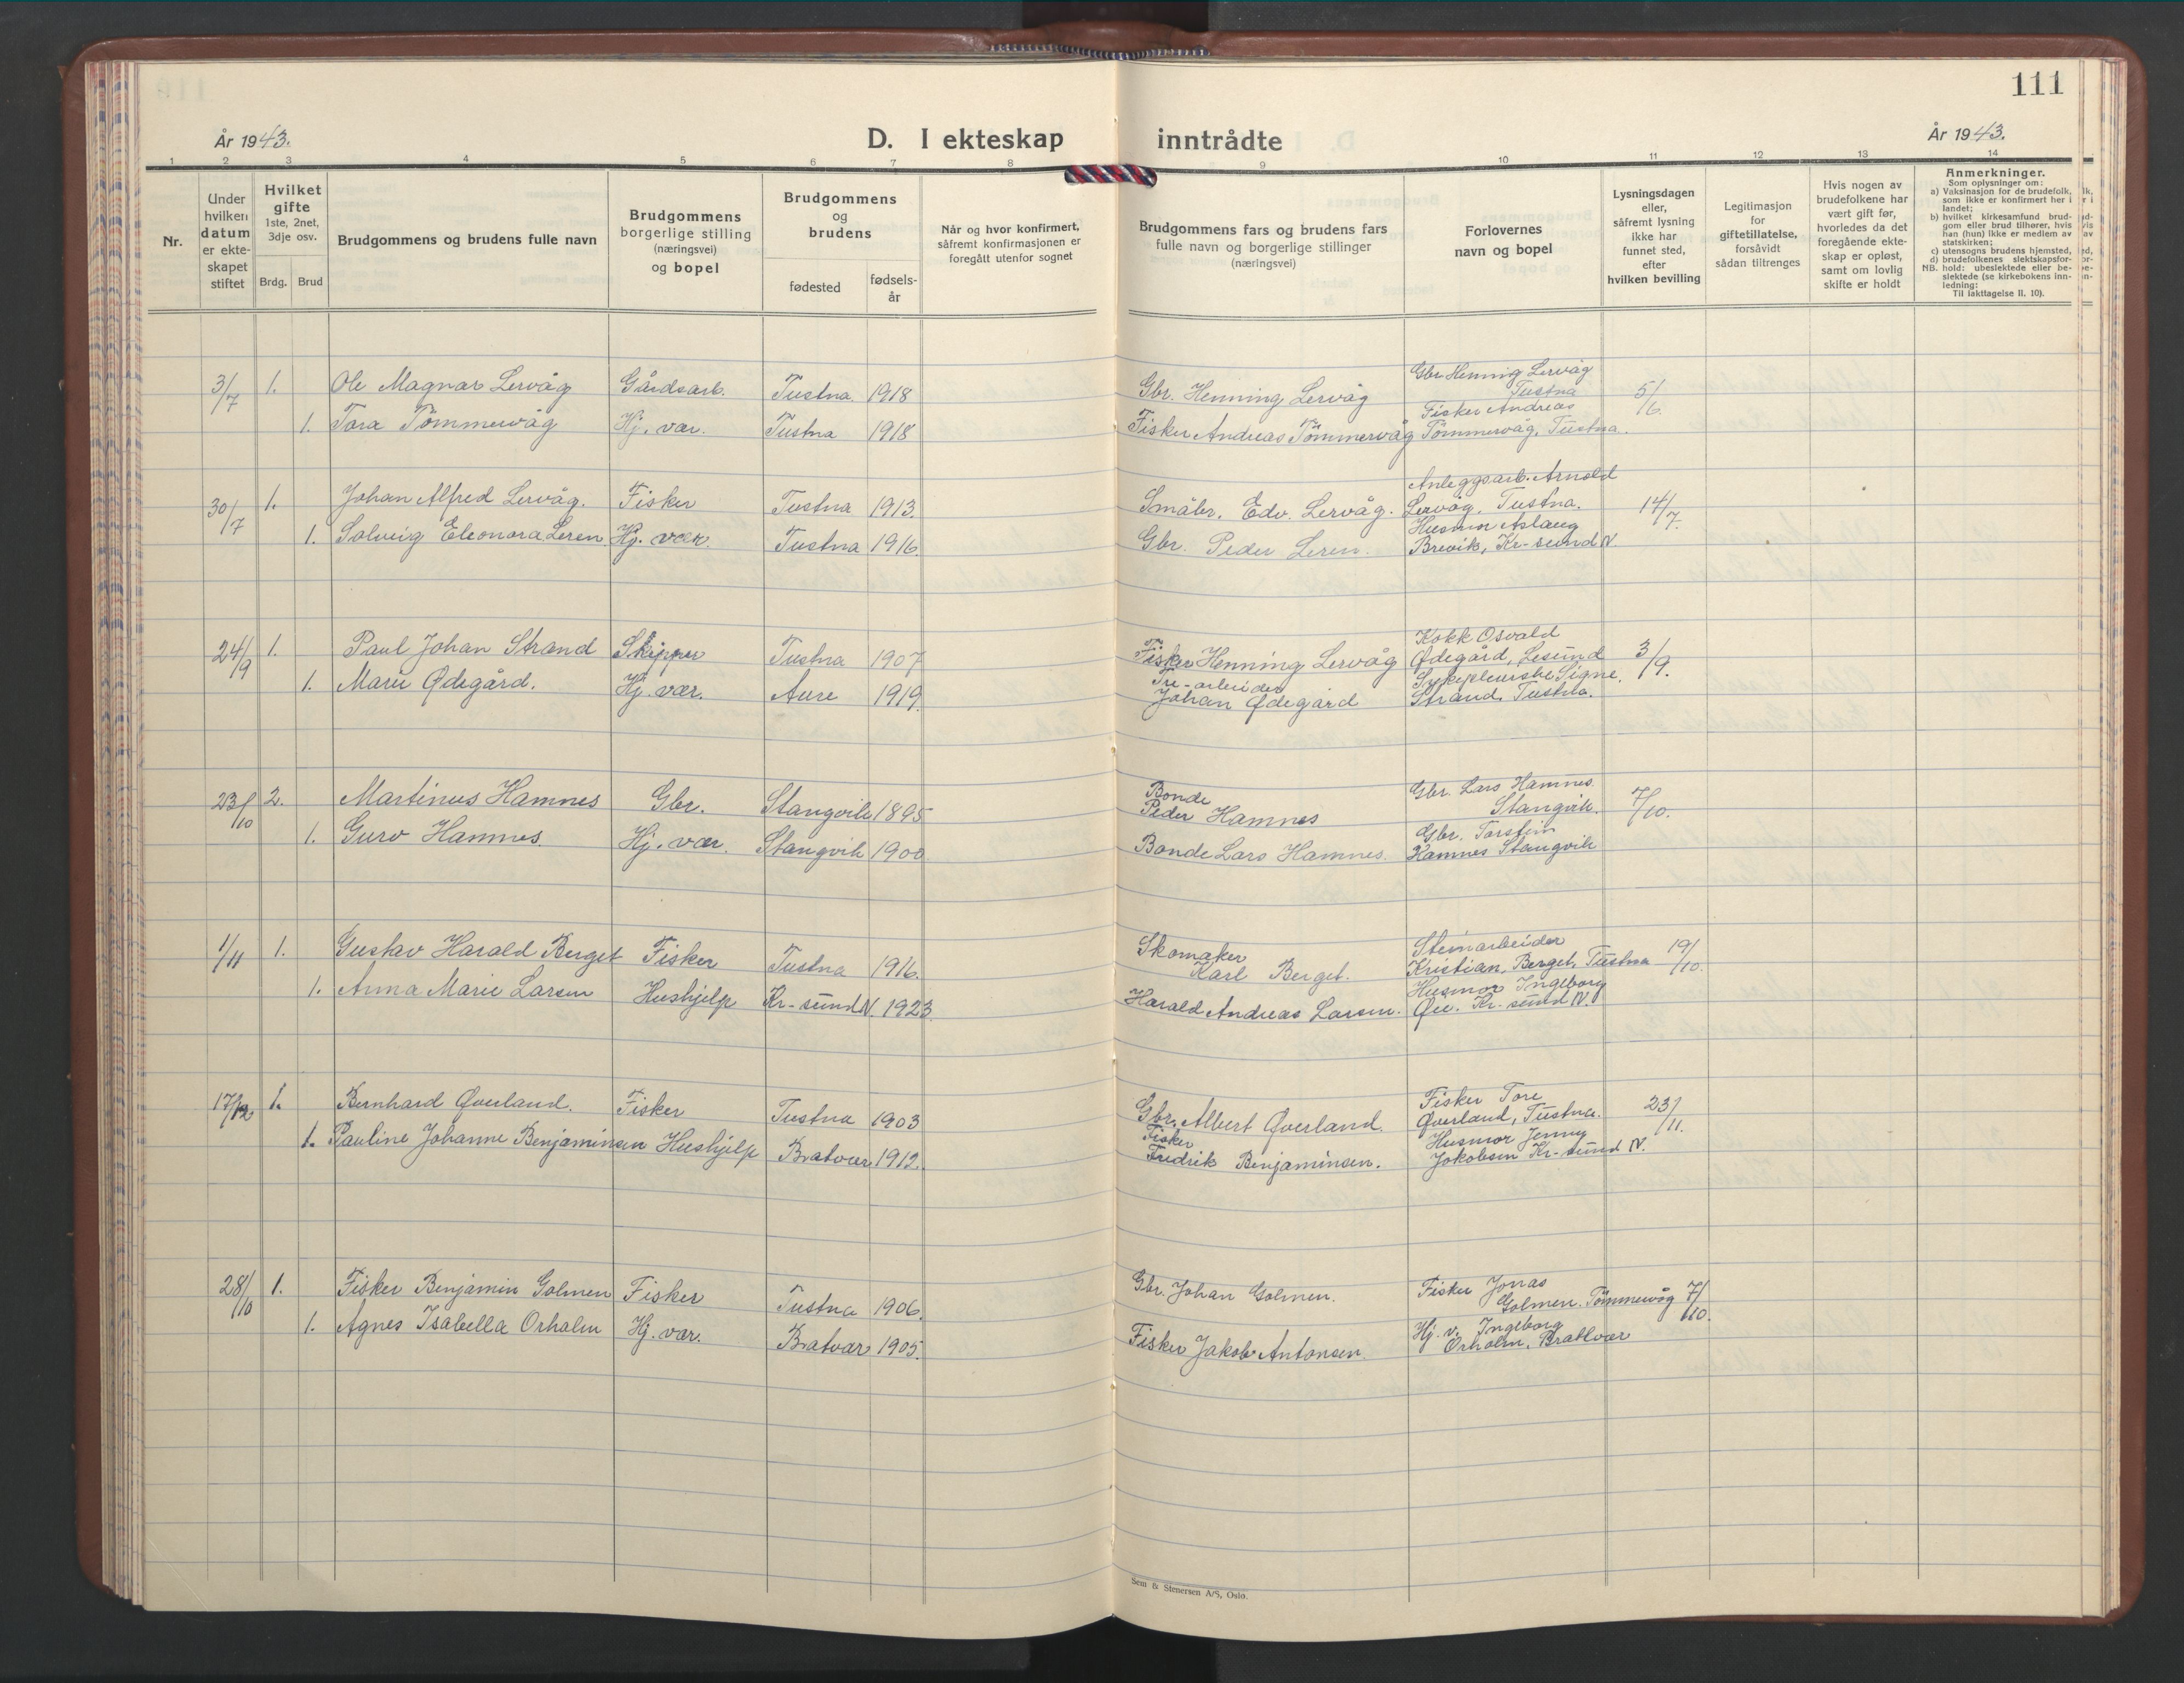 111
År 1943.
D. I ekteskap inntrådte
År 1943.
1 2 3 4 5 6 7 8 9 10 11 12 13 14
Nr.
Under hvilken datum er ekteskapet stiftet
Hvilket gifte 1ste, 2net, 3dje osv.
Brdg. Brud
Brudgommens og brudens fulle navn
Brudgommens borgerlige stilling (næringsvei) og bopel
Brudgommens og brudens
fødested
fødselsår
Når og hvor konfirmert, såfremt konfirmasjonen er foregått utenfor sognet
Brudgommens fars og brudens fars fulle navn og borgerlige stillinger (næringsvei)
Forlovernes navn og bopel
Lysningsdagen eller, såfremt lysning ikke har funnet sted, efter hvilken bevilling
Legitimasjon for giftetillatelse, forsåvidt sådan tiltrenges
Hvis nogen av brudefolkene har vært gift før, hvorledes da det foregående ekteskap er opløst, samt om lovlig skifte er holdt
Anmerkninger.
Som oplysninger om:
a) Vaksinasjon for de brudefolk, som ikke er konfirmert her i landet;
b) hvilket kirkesamfund brudgom eller brud tilhører, hvis han (hun) ikke er medlem av statskirken;
c) utensogns brudens hjemsted,
d) brudefolkenes slektskapsforhold: ubeslektede eller beslektede (se kirkebokens innledning:
NB.
Til iakttagelse II. 10).
3/7 1. Ole Magnar Lervåg Gårdsarb. Tustna 1918 Gbr. Henning Lervåg Gbr. Henning Lervåg Tustna 5/6.
1. Tora Tömmervåg Hj. vær. Tustna 1918 Fisker Andreas Tömmervåg Fisker Andreas Tömmervåg, Tustna.
30/7 1. Johan Alfred Lervåg. Fisker Tustna 1913. Småbr. Edv. Lervåg. Anleggsarb. Arnold Lervåg, Tustna. 14/7.
1. Solveig Eleonora Leren Hj. vær. Tustna 1916. Gbr. Peder Leren. Husmor Aslaug Brevik, Kr-sund N.
24/9 1. Paul Johan Strand Skipper Tustna 1907 Fisker Henning Lervåg Kokk Osvald Ødegård, Lesund 3/9.
1. Marie Ødegård. Hj. vær. Aure 1919. Tre-arbeider Johan Ødegård Sykepleierske Signe Strand, Tustna.
23/10 2. Martinus Hamnes Gbr. Stangvik 1895 Bonde Peder Hamnes Gbr. Lars Hamnes Stangvik. 7/10.
1. Guro Hamnes. Hj. vær. Stangvik 1900 Bonde Lars Hamnes. Gbr. Torstein Hamnes Stangvik
1/11 1. Gustav Harald Berget Fisker Tustna 1916. Skomaker Karl Berget. Steinarbeider Kristian Berget, Tustna 19/10.
1. Anna Marie Larsen Hushjelp Kr-sund N. 1923. Harald Andreas Larsen. Husmor Ingeborg Kr-sund N.
17/12 1. Bernhard Qverland. Fisker Tustna 1903 Gbr. Albert Qverland. Fisker Tore Qverland, Tustna. 23/11.
1. Pauline Johanne Benjaminsen Hushjelp Bratvær 1912. Fisker Fredrik Benjaminsen. Husmor Jenny Jakobsen Kr-sund N.
28/10 1. Fisker Benjamin Golmen Fisker Tustna 1906. Gbr. Johan Golmen. Fisker Jonas Golmen. Tömmervåg 7/10.
1. Agnes Isabella Orholm Hj. vær. Bratvær 1905. Fisker Jakob Antonsen. Hj. v. Ingeborg Orholm, Brattvær
Sem & Stenersen A/S, Oslo.